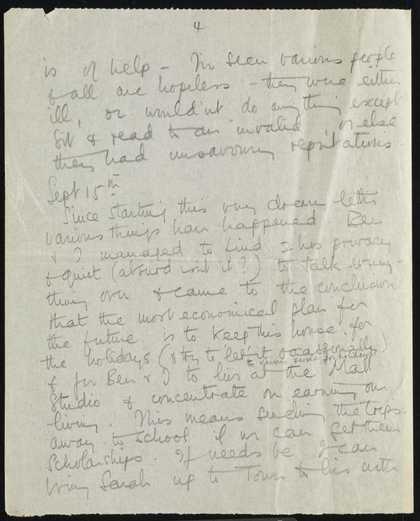 4
is of help – I've seen various people
& all are hopeless – they were either
ill, or wouldn't do anything except
sit & read to an invalid, or else
they had unsavoury reputations
Sept 15th
Since starting this very dreary letter
various things have happened Ben
& I managed to find
& quiet (absurd isn't it?) to talk every-
thing over & came to the conclusion
that the most economical plan for
the future is to keep this house for
the holidays (& try to let it occasionally)
& for Ben & I to live at the Mall
Studio & concentrate on earning our
living. This means sending the trips
away to school if we can get them
scholarships. If needs be I can
bring Sarah up to Town & live with